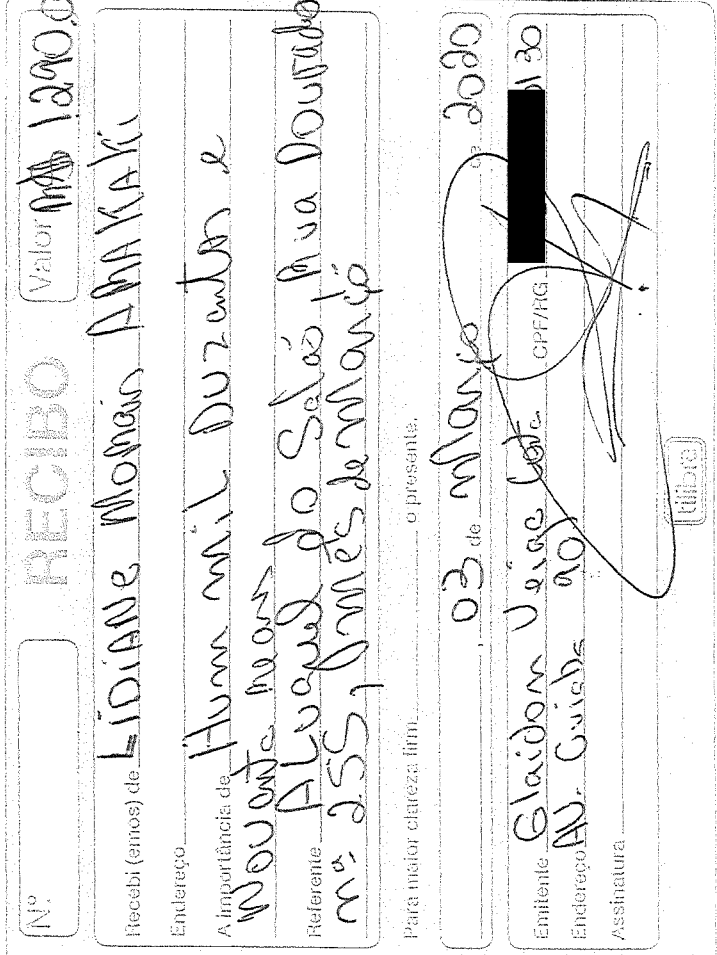 N.º RECIBO Valor R$ 1290,0
Recebi (emos) de LIDIANE Morais AMAKAKi
Endereço
A importância de Hum mil Duzentos e
Noventa reais
Referente ALuguel do Salão, Rua Dourado
nº 255, mês de Março
Para maior clareza firm o presente.
03 de Março de 2020
Emitente Glaidon CPF/RG 0130
Endereço AV. Cuiabá 90
Assinatura
tilibra